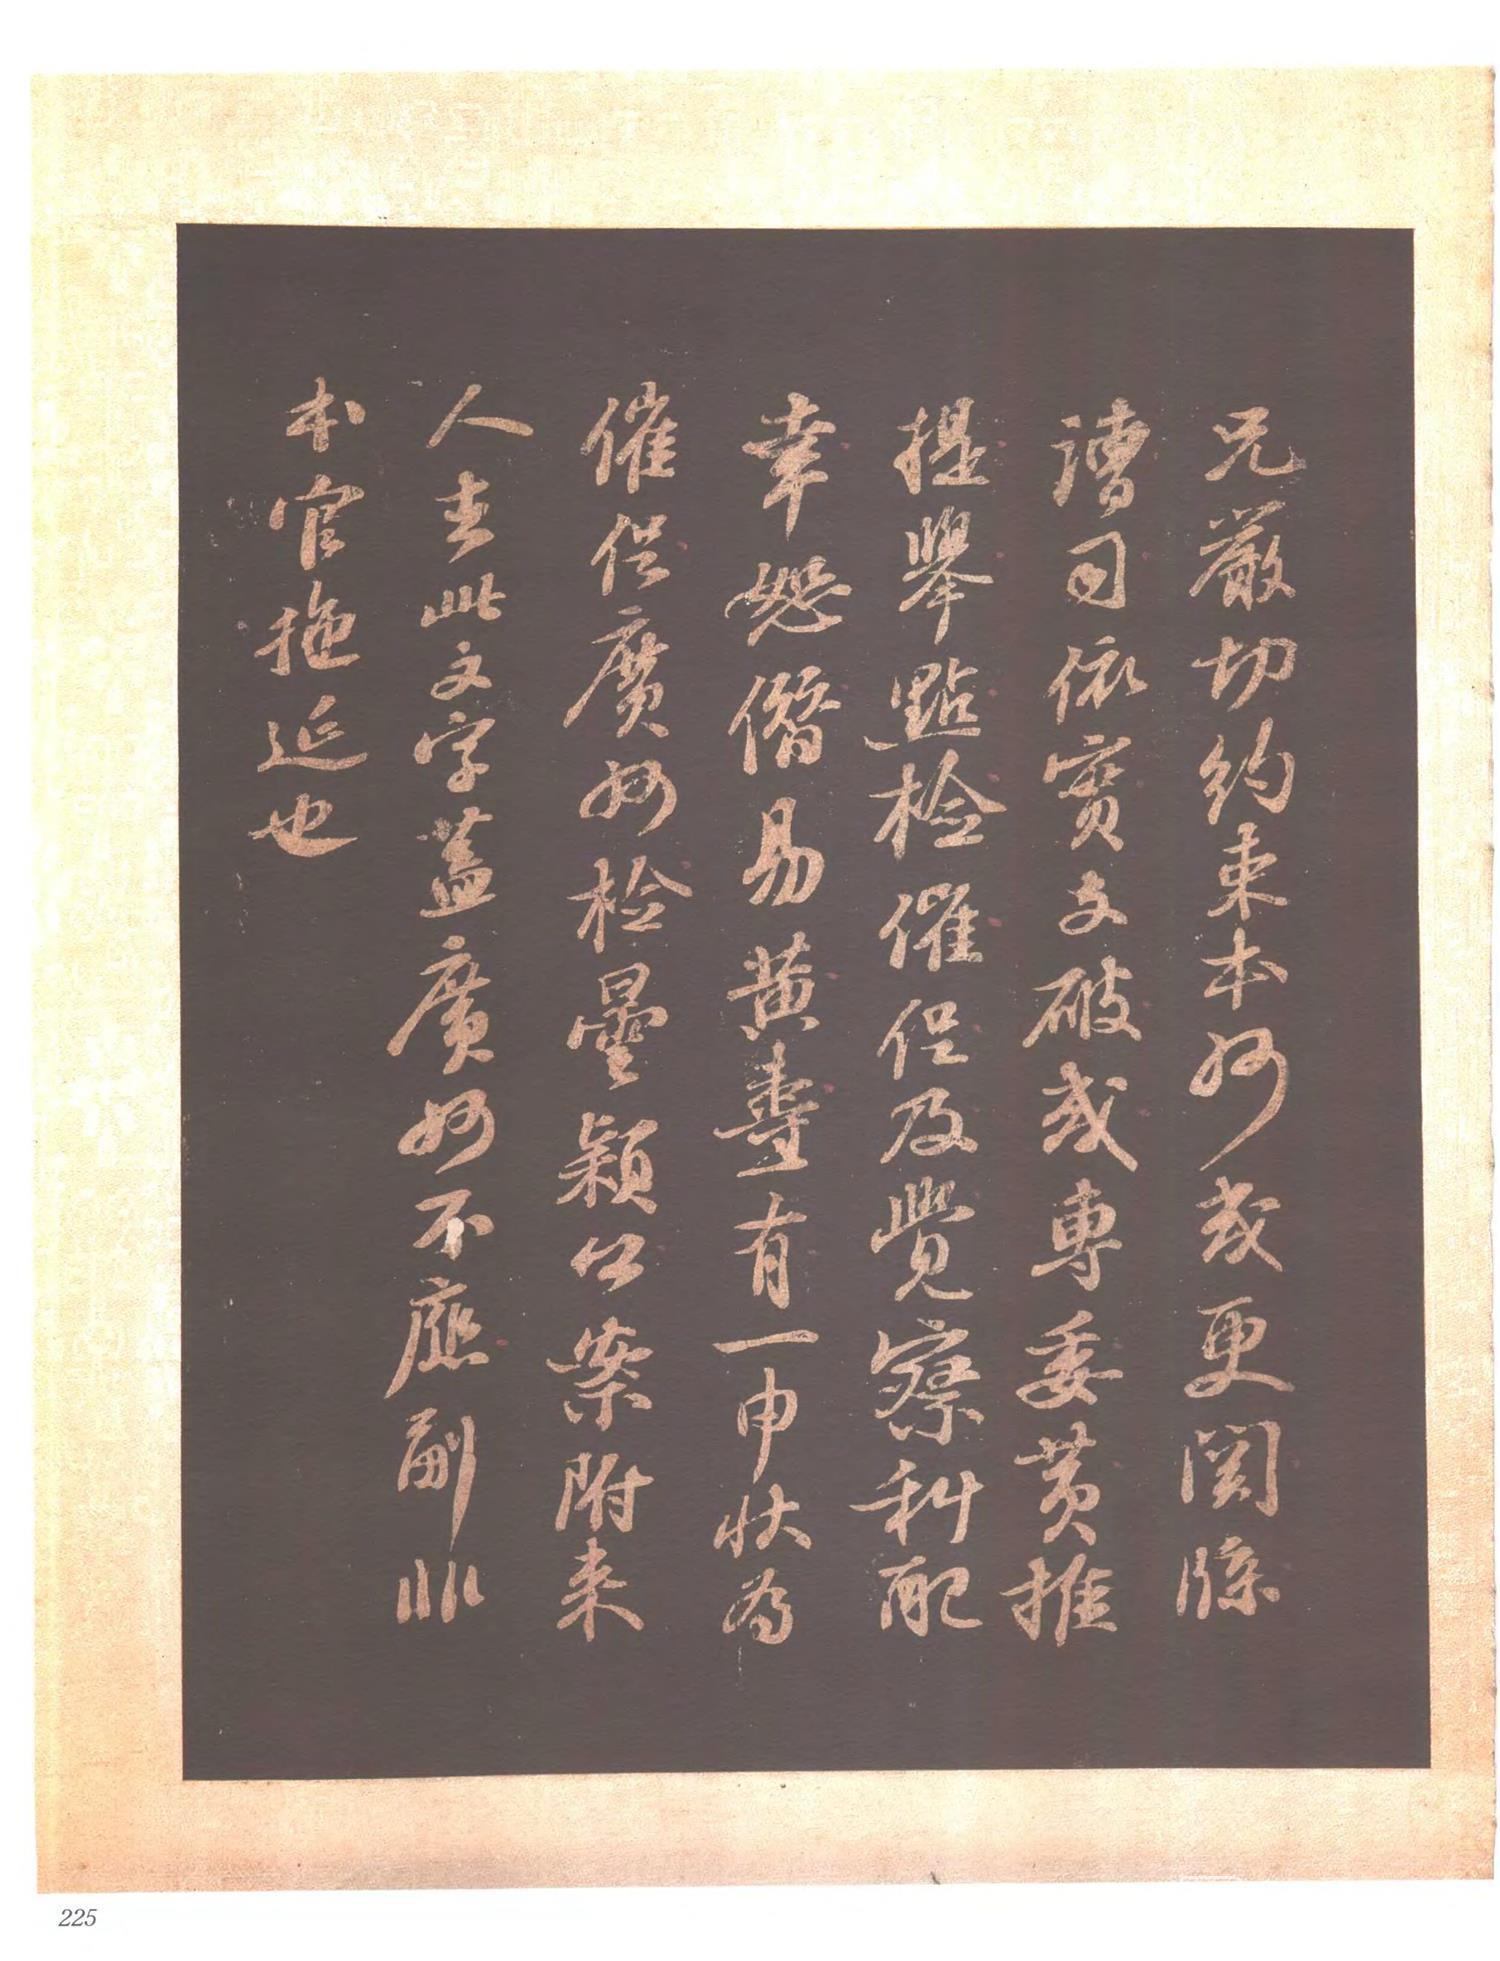 兄嚴切約束本州或更關牒
漕司依實支破或專委黄推
提舉點檢催促及覺察科配
幸恕僭易黄燾有一申狀爲
催促廣州檢曇穎公案附来
人去此文字蓋廣州不應副非
本官拖延也
225